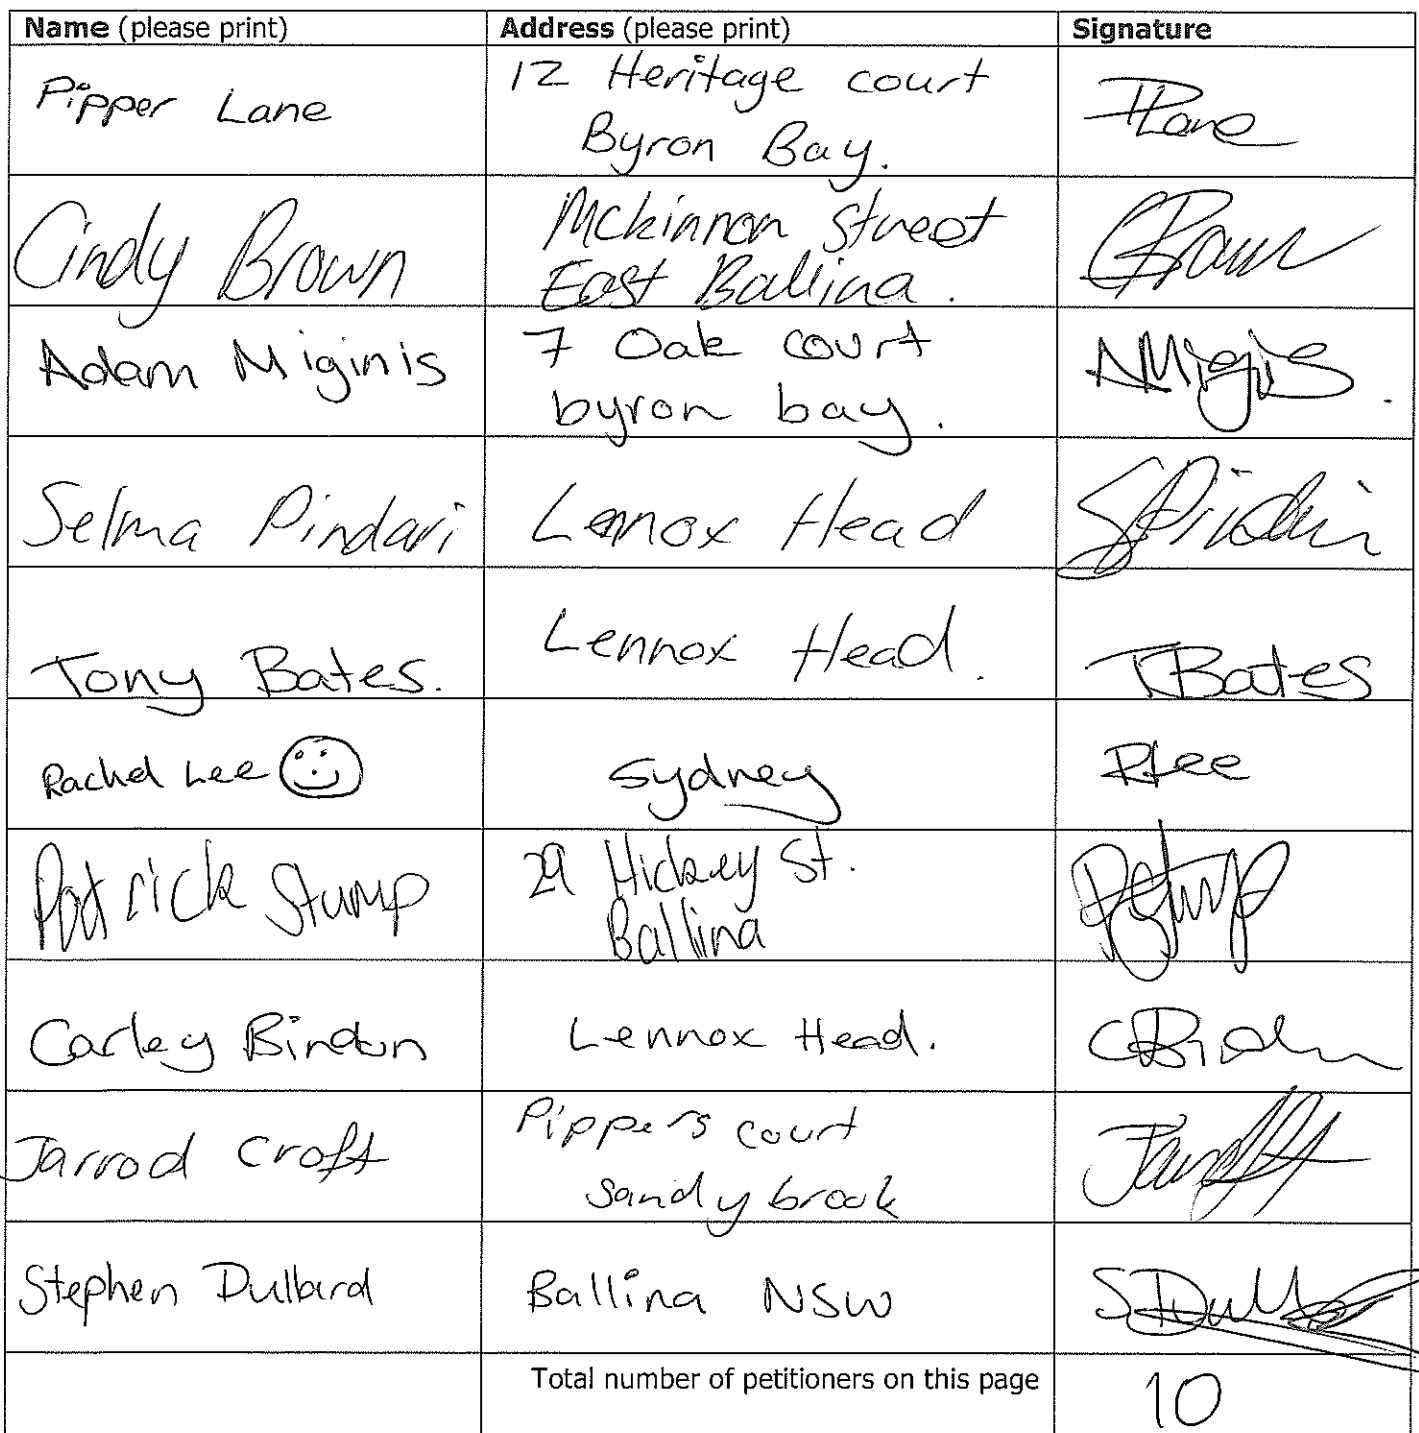 Name (please print) Address (please print) Signature
Pipper Lane 12 Heritage court PLane
Byron Bay.
Cindy Brown Mckinnon Street CBrown
East Ballina.
Adam Miginis 7 Oak court AMigis.
byron bay.
Selma Pindari Lennox Head
Tony Bates. Lennox Head. TBates
Rachel Lee Sydney RLee
Patrick Stump 29 Hickey St. PStump
Ballina
Carley Bindon Lennox Head.
Jarrod Croft Pippers court
Sandybrook
Stephen Dullard Ballina NSW
Total number of petitioners on this page 10